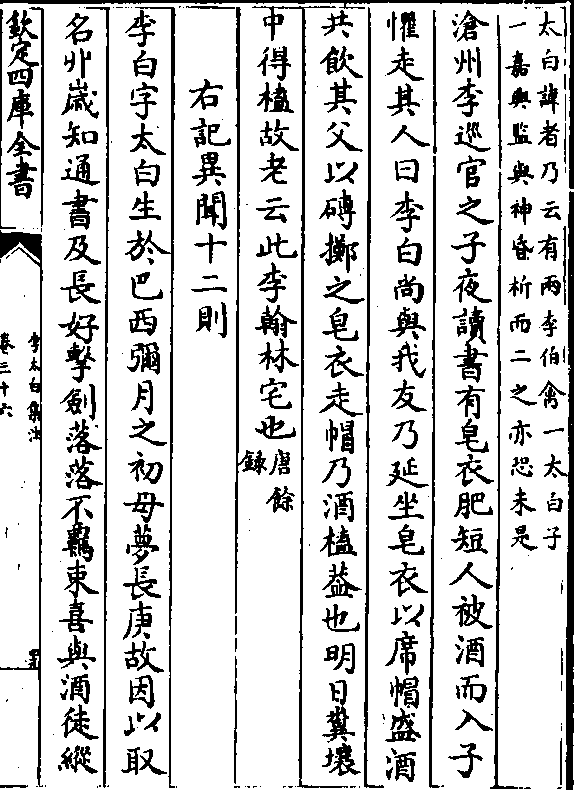 太白諱者乃云有兩李伯禽一太白子
一嘉興監與神昏析而二之亦恐未是
滄州李巡官之子夜讀書有皂衣肥短人被酒而入子
懼走其人曰李白尚與我友乃延坐皂衣以席帽盛酒
共飲其父以磚擲之皂衣走帽乃酒榼葢也明日糞壤
中得榼故老云此李翰林宅也唐餘
錄
右記異聞十二則
李白字太白生於巴西彌月之初母夢長庚故因以取
名丱嵗知通書及長好擊劍落落不羈束喜與酒徒縱
欽定四庫全書
李太白集注
卷三十六